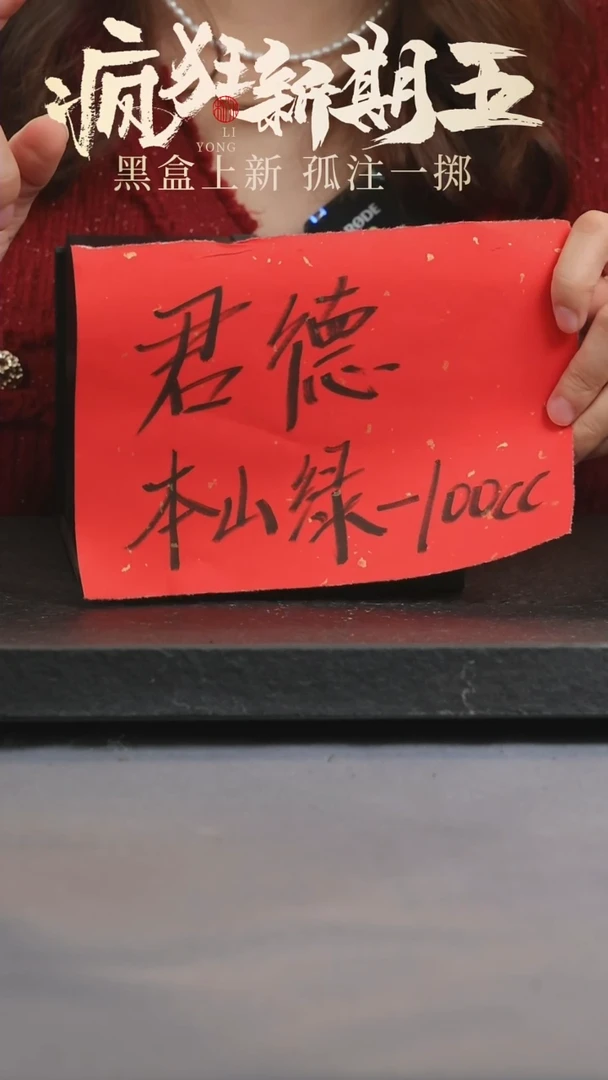 疯狂新期五
LI
YONG
黑盒上新 孤注一掷
RØDE
君德
本山绿-100cc